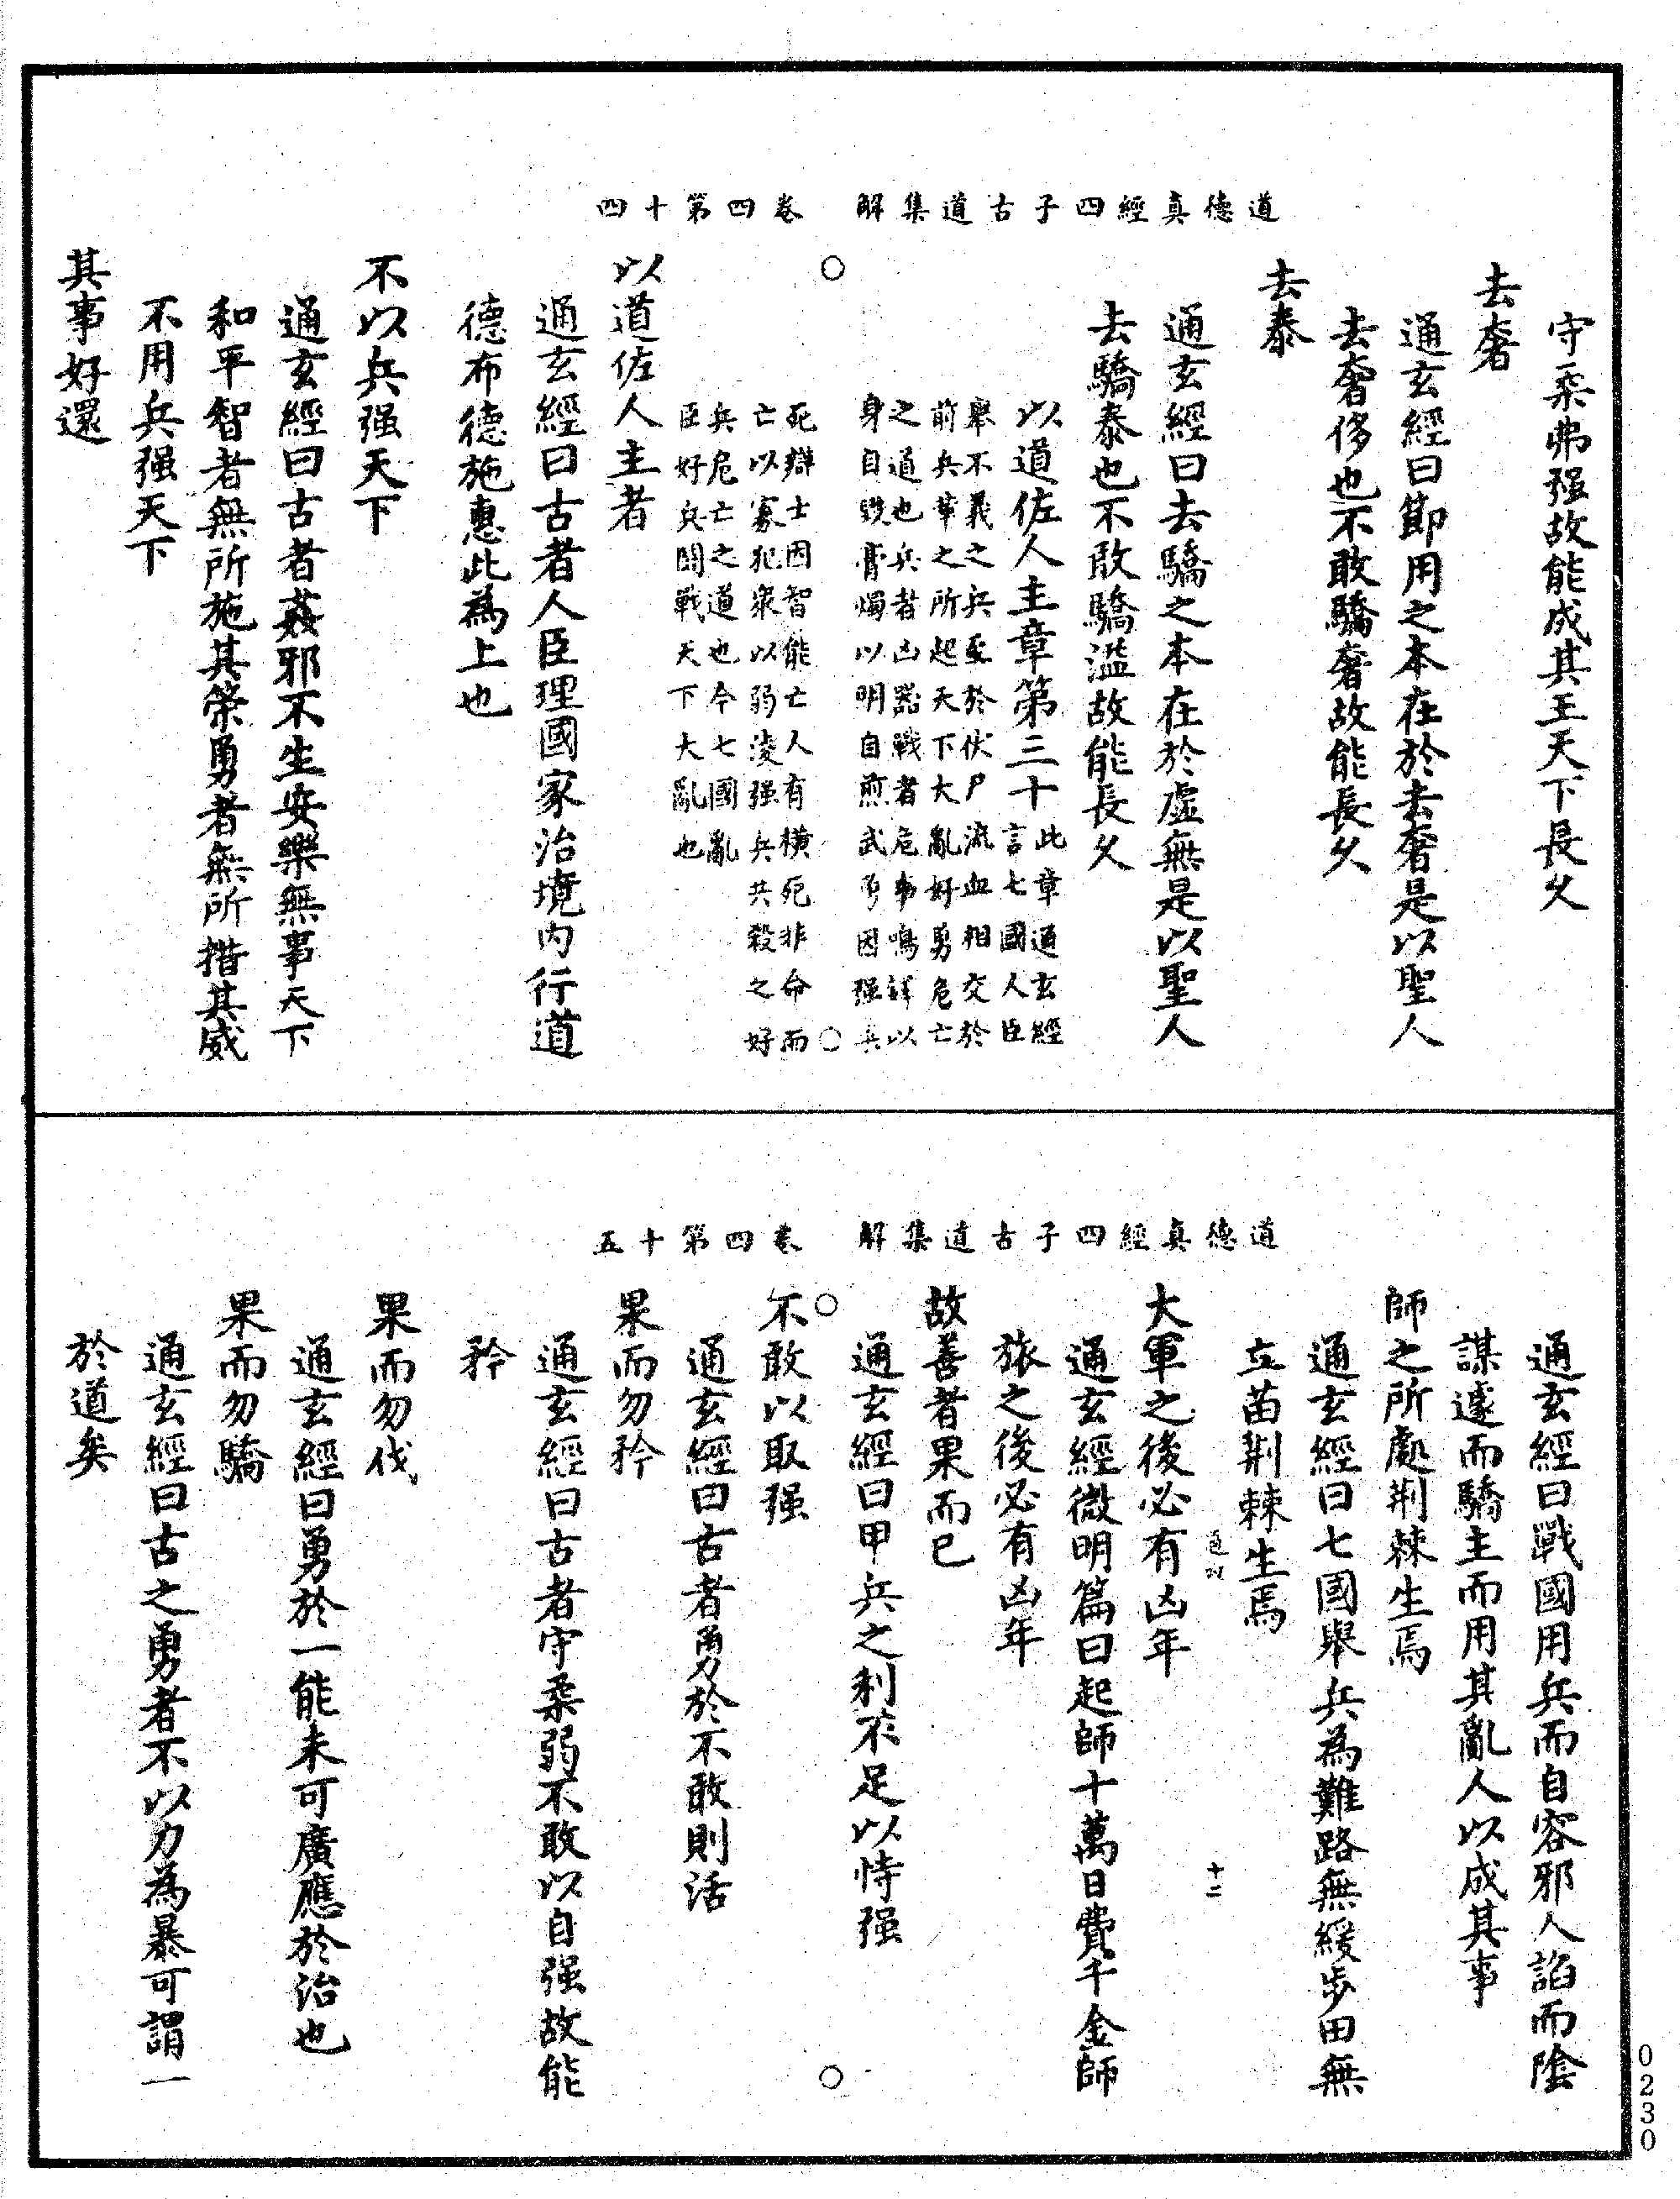 道德真經四子古道集解　卷四第十四
守柔弗强故能成其王天下長久
去奢
通玄經曰節用之本在於去奢是以聖人
去奢侈也不敢驕奢故能長久
去泰
通玄經曰去驕之本在於虛無是以聖人
去驕泰也不敢驕溢故能長久
以道佐人主章第三十
此章通玄經
言七國人臣
舉不義之兵至於伏尸流血相交於
前兵革之所起天下大亂好勇危亡
之道也兵者凶器戰者危事鳴鐸以
身自毀膏燭以明自煎武勇因强兵
死辯士因智能亡人有橫死非命而
亡以寡犯衆以弱凌强兵共殺之好
兵危亡之道也今七國亂
臣好兵鬪戰天下大亂也
以道佐人主者
通玄經曰古者人臣理國家治境內行道
德布德施惠此為上也
不以兵强天下
通玄經曰古者姦邪不生安樂無事天下
和平智者無所施其策勇者無所措其威
不用兵强天下
其事好還
道德真經四子古道集解　卷四第十五
通玄經曰戰國用兵而自容邪人諂而陰
謀遽而驕主而用其亂人以成其事
師之所處荆棘生焉
通玄經曰七國舉兵為難路無緩步田無
立苗荆棘生焉
十二
大軍之後必有凶年
通玄經微明篇曰起師十萬日費千金師
旅之後必有凶年
故善者果而已
通玄經曰甲兵之利不足以恃强
不敢以取强
通玄經曰古者勇於不敢則活
果而勿矜
通玄經曰古者守柔弱不敢以自强故能
矜
果而勿伐
通玄經曰勇於一能未可廣應於治也
果而勿驕
通玄經曰古之勇者不以力為暴可謂一
於道矣
0230